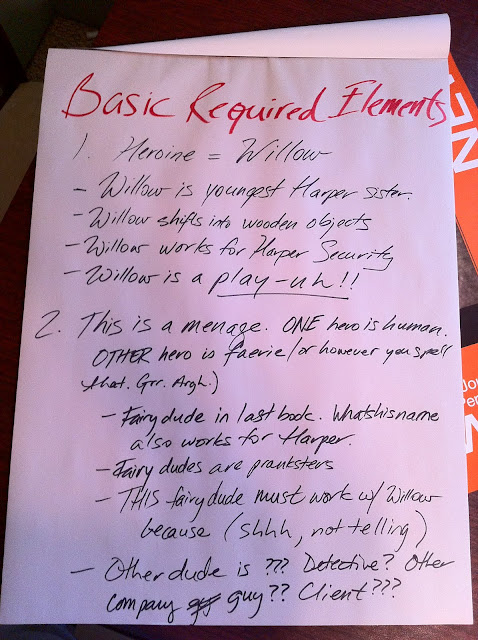 Basic Required Elements
1. Heroine = Willow
- Willow is youngest Harper sister.
- Willow shifts into wooden objects
- Willow works for Harper Security
- Willow is a play-uh!!
2. This is a menage. ONE hero is human.
OTHER hero is faerie/or however you spell
that. Grr. Argh.)
- Fairy dude in last book. Whatshisname
also works for Harper.
- Fairy dudes are pranksters
- THIS fairy dude must work w/ Willow
because (shhh, not telling)
- Other dude is ??? Detective? Other
company guy?? Client???